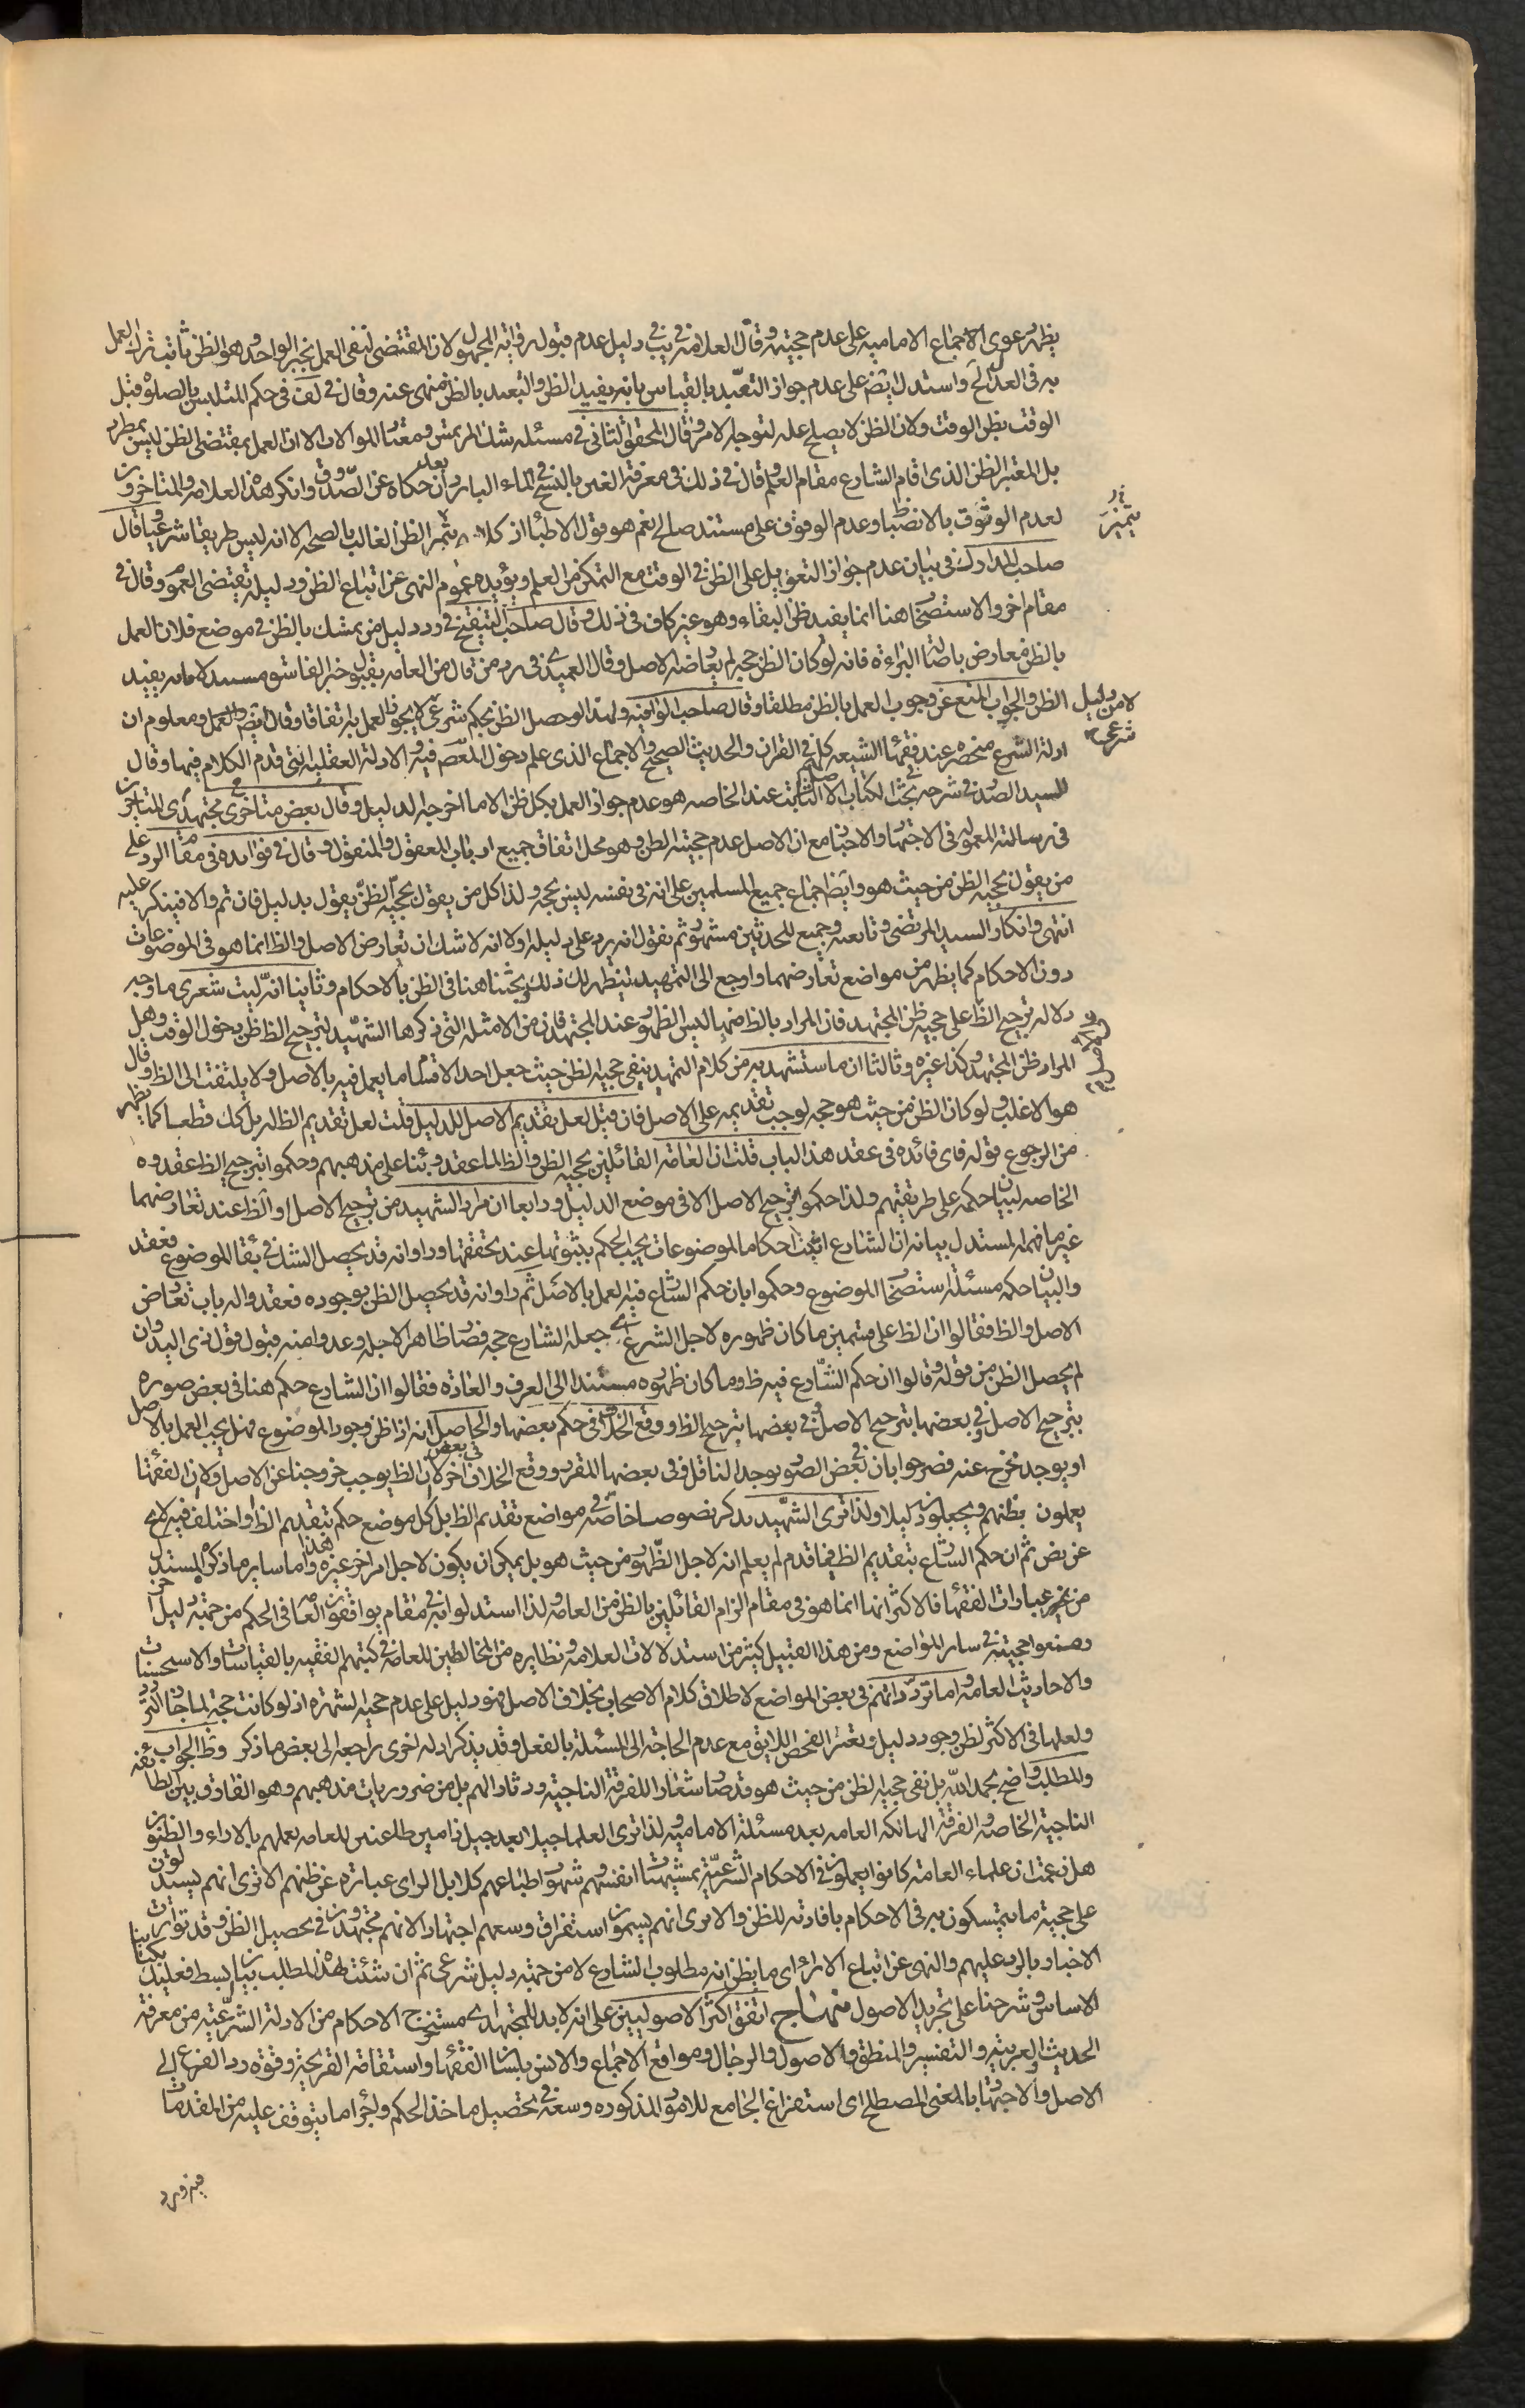 يظهر دعوى الاجماع الاماميه على عدم حجيته وقال العلامة في يب في دليل عدم قبول رواية المجهول لان المقتضى لنفى العمل بخبر الواحد وهو الظن ثابت ترك العمل
به في العدل الخ واستدل ايضا على عدم جواز التعبد بالقياس بانه يفيد الظن والتعبد بالظن منهى عنه وقال في لف في حكم المتلبس بالصلوة قبل
الوقت بظن الوقت ولان الظن لا يصلح عله لتوجه الامر وقال المحقق الثاني في مسئله شك المرتمس ومعتاد الموالات الا ان العمل بمقتضى الظن ليس بمطرد
بل المعتبر الظن الذى اقام الشارع مقام العلم وقال في ذلك في معرفة الغبن بالنسخ في الماء البارد بعد ان حكاه عن الصدوق وانكر هذا العلامه والمتاخرون
لعدم الوثوق بالانضباط وعدم الوقوف على مستند صالح نعم هو قول الاطبا اذ كلا يثمر الظن الغالب بالصحه الا انه ليس طريقا شرعيا وقال
صاحب المدارك في بيان عدم جواز التعويل على الظن في الوقت مع التمكن من العلم ويؤيده عموم النهى عن اتباع الظن ودليله يقتضى العموم وقال في
مقام اخر والاستصحاب هنا انما يفيد ظن البقاء وهو غير كاف في ذلك وقال صاحب التنقيح في رد دليل من تمسك بالظن في موضع فلان العمل
بالظن معارض باصالة البراءة فانه لو كان الظن حجه لم يعارضه الاصل وقال العميدى في رد من قال من العامه بقبول خبر الفاسق مستدلا بانه يفيد
الظن والجواب المنع عن وجوب العمل بالظن مطلقا وقال صاحب الوافيه ولهذا لو حصل الظن بحكم شرعى لا يجوز العمل به اتفاقا وقال ايضا والعمل ومعلوم ان
ادلة الشرع منحصره عند فقهاء الشيعه كلهم في القران والحديث الصحيح والاجماع الذى علم دخول المعصوم فيه والادلة العقليه التى قدم الكلام فيها وقال
السيد الصدر في شرحه في بحث الكتاب الاصل الثابت عند الخاصه هو عدم جواز العمل بكل ظن الا ما اخرجه الدليل وقال بعض متاخرى مجتهدى المتاخرين
في رسالته المعموله في الاجتهاد والاخبار مع ان الاصل عدم حجيته الظن وهو محل اتفاق جميع ارباب المعقول والمنقول وقال في فوايده في مقام الرد على
من يقول بحجيه الظن من حيث هو وايضا اجماع جميع المسلمين على انه في نفسه ليس بحجه ولذا كل من يقول بحجيه الظن يقول بدليل فان تم والا فينكر عليه
انتهى وانكار السيد المرتضى وتابعيه وجميع المحدثين مشهور ثم نقول انه يرد على دليله اولا انه لا شك ان تعارض الاصل والظ انما هو في الموضوعات
دون الاحكام كما يظهر من مواضع تعارضهما وارجع الى التمهيد ليظهر لك ذلك وبحثنا هنا في الظن بالاحكام وثانيا انه ليت شعرى ما وجه
دلاله ترجيح الظ على حجيه ظن المجتهد فان المراد بالظ منها ليس الظهور عند المجتهد فان من الامثله التى ذكرها الشهيد لترجيح الظ ظن دخول الوقت وهل
المراد ظن المجتهد وكذا غيره وثالثا ان ما استشهد به من كلام التمهيد ينفى حجيه الظن حيث جعل احد الاقسام ما يعمل فيه بالاصل ولا يلتفت الى الظ وقال
هو الاغلب ولو كان الظن من حيث هو حجه لوجب تقديمه على الاصل فان قيل لعل تقديم الاصل للدليل قلت لعل تقديم الظ له بل كك قطعا كما يظهر
من الرجوع قوله فاى فائده في عقد هذا الباب قلت ان العامه القائلين بحجيه الظن والظ لما عقدوه بناء على مذهبهم وحكموا بترجيح الظ عقدوه
الخاصه لبيان حكمه على طريقتهم ولذا حكموا بترجيح الاصل الا في موضع الدليل ورابعا ان مراد الشهيد من ترجيح الاصل او الظ عند تعارضهما
غير ما فهمه المستدل بيانه ان الشارع اثبت احكاما لموضوعات يجب الحكم بثبوتها عند تحققها وراوا انه قد يحصل الشك في بقاء الموضوع فعقد
والبيان حكمه مسئلة استصحاب الموضوع وحكموا بان حكم الشارع فيه العمل بالاصل ثم راوا انه قد يحصل الظن بوجوده فعقدوا له باب تعارض
الاصل والظ فقالوا ان الظ على قسمين ما كان ظهوره لاجل الشرع جعله الشارع حجه فصار ظاهرا لاجله وعدوا منه قبول قول ذى اليد وان
لم يحصل الظن من قوله وقالوا ان حكم الشارع فيه ظ وما كان ظهوره مستندا الى العرف والعادة فقالوا ان الشارع حكم هنا في بعض صوره
بترجيح الاصل وفي بعضها بترجيح الاصل وفي بعضها بترجيح الظ ووقع الخلاف في حكم بعضها والحاصل انه اذا ظن وجود الموضوع فهل يجب العمل بالاصل
او يوجد مخرج عنه فصرحوا بان في بعض الصور يوجد الناقل وفي بعضها المقرر ووقع الخلاف في بعض اخر لان الظ يوجب خروجنا عن الاصل ولان الفقهاء
يعملون بظنهم ويجعلونه دليلا ولذا ترى الشهيد يذكر نصوصا خاصة في مواضع تقديم الظ بل كل موضع حكم بتقديم الظ او اختلف فيه لا يخ
عن نص ثم ان حكم الشارع بتقديم الظ فيما قدم لم يعلم انه لاجل الظهور من حيث هو بل يمكن ان يكون لاجل امر اخر غيره هذا واما ساير ما ذكره المستدل
من عبارات الفقهاء فالاكثر انها انما هو في مقام الزام القائلين بالظن من العامه ولذا استدلوا به في مقام يوافقون العامه في الحكم من جهة دليل اخر
ومنعوا حجيته في ساير المواضع ومن هذا القبيل كثير من استدلالات العلامه ونظايره من المخالطين للعامه في كتبهم الفقهيه بالقياسات والاستحسانات
والاحاديث العامه واما تردداتهم في بعض المواضع لاطلاق كلام الاصحاب بخلاف الاصل فهو دليل على عدم حجيه الشهره اذ لو كانت حجة لما جاز التردد
ولعلها في الاكثر لظن وجود دليل وتعذر الفحص اللايق مع عدم الحاجة الى المسئلة بالفعل وقد يذكر ادله اخرى راجعه الى بعض ما ذكر وظ الجواب
والمطلب واضح بحمد الله بل نفى حجيه الظن من حيث هو قد صار شعارا للفرقة الناجيه ودثارا لهم بل من ضروريات مذهبهم وهو الفارق بين الطائفة
الناجية الخاصه والفرقة الهالكه العامه بعد مسئلة الامامة ولذا ترى العلماء جيلا بعد جيل ذامين طاعنين للعامه بعملهم بالاراء والظنون
هل زعمت ان علماء العامه كانوا يعملون في الاحكام الشرعيه بمشتهيات انفسهم وشهوات طباعهم كلا بل الراى عبارة عن ظنهم الا ترى انهم يستدلون
على حجية ما يتمسكون به في الاحكام بافادته للظن والا ترى انهم يسمون استفراق وسعهم اجتهادا لانهم مجتهدون في تحصيل الظن وقد تواترت
الاخبار بالرد عليهم والنهى عن اتباع الاراء اى ما يظن انه مطلوب الشارع لا من جهة دليل شرعى ثم ان شئت لهذا المطلب بيانا ببسط فعليك بكتابنا
الاساس وشرحنا على تجريد الاصول منهاج اتفق اكثر الاصوليين على انه لا بد للمجتهد اى مستخرج الاحكام من الادلة الشرعيه من معرفة
الحديث والعربيه والتفسير والمنطق والاصول والرجال ومواقع الاجماع والانس بلسان الفقهاء واستقامة القريحة وقوة رد الفرع الى
الاصل والاجتهاد بالمعنى المصطلح اى استفراغ الجامع للامور المذكوره وسعه في تحصيل ماخذ الحكم واجراء ما يتوقف عليه من المقدمات
لا من دليل
شرعى